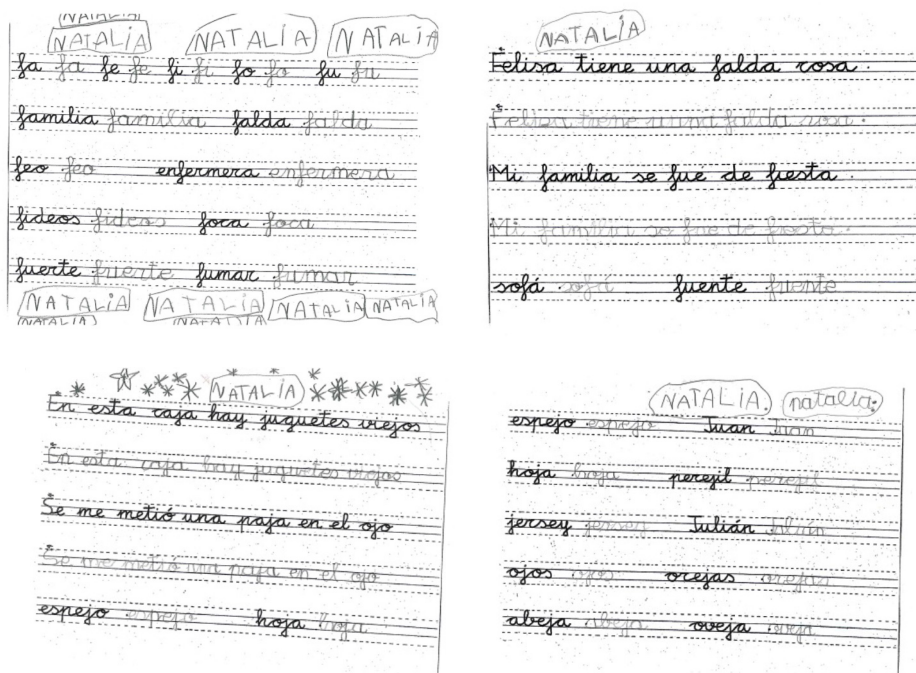 NATALIA
NATALIA NATALIA NATALIA
fa fa fe fe fi fi fo fo fu fu
familia familia falda falda
feo feo enfermera enfermera
fideos fideos foca foca
fuerte fuerte fumar fumar
NATALIA NATALIA NATALIA NATALIA
NATALIA NATALIA
NATALIA
Felisa tiene una falda rosa.
Felisa tiene una falda rosa.
Mi familia se fué de fiesta.
Mi familia se fue de fiesta.
sofá sofá fuente fuente
NATALIA
En esta caja hay juguetes viejos
En esta caja hay juguetes viejos
Se me metió una paja en el ojo
Se me metió una paja en el ojo
espejo espejo hoja hoja
NATALIA. natalia.
espejo espejo Juan Juan
hoja hoja perejil perejil
jersey jersey Julián Julián
ojos ojos orejas orejas
abeja abeja oveja oveja